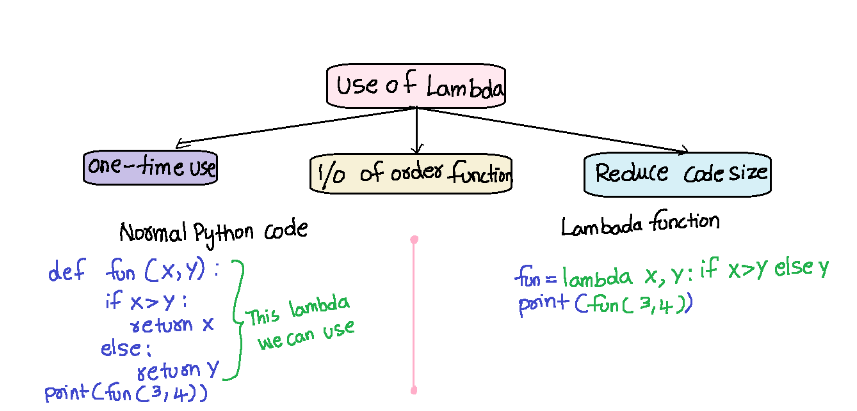 Use of Lambda
one-time use
I/O of order function
Reduce code size
Normal Python code
def fun (x,y) :
if x>y :
return x
else :
return y
print(fun(3,4))
This lambda
we can use
Lambada function
fun = lambda x, y : if x>y else y
print (fun( 3,4))